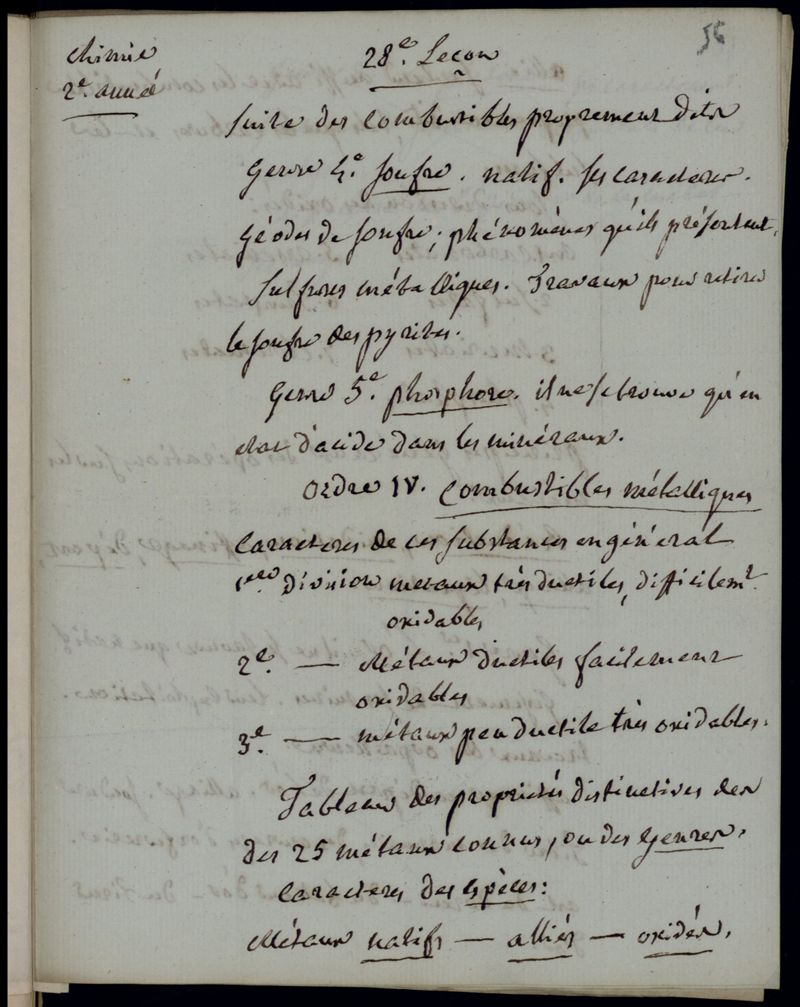 56
Chimie
2e. année
28e. Leçon
suite des combustibles proprement dits
Genre 4e. soufre. natif. ses caracteres.
Géodes de soufre; phénomènes qu'ils présentent,
sulfures métalliques. Travaux pour retirer
le soufre des pyrites.
Genre 5e. phosphore. il ne se trouve qu'en
etat d'acide dans les minéraux.
Ordre IV. Combustibles métalliques
Caracteres de ces substances en général
1ere division metaux très ductiles, difficilemt.
oxidables
2e. — Métaux ductiles facilement
oxidables
3e. — métaux peu ductile très oxidables.
Tableau des propriétés distinctives des
des 25 métaux connus, ou des genres.
Caracteres des espèces:
Métaux natifs — alliés — oxidés.